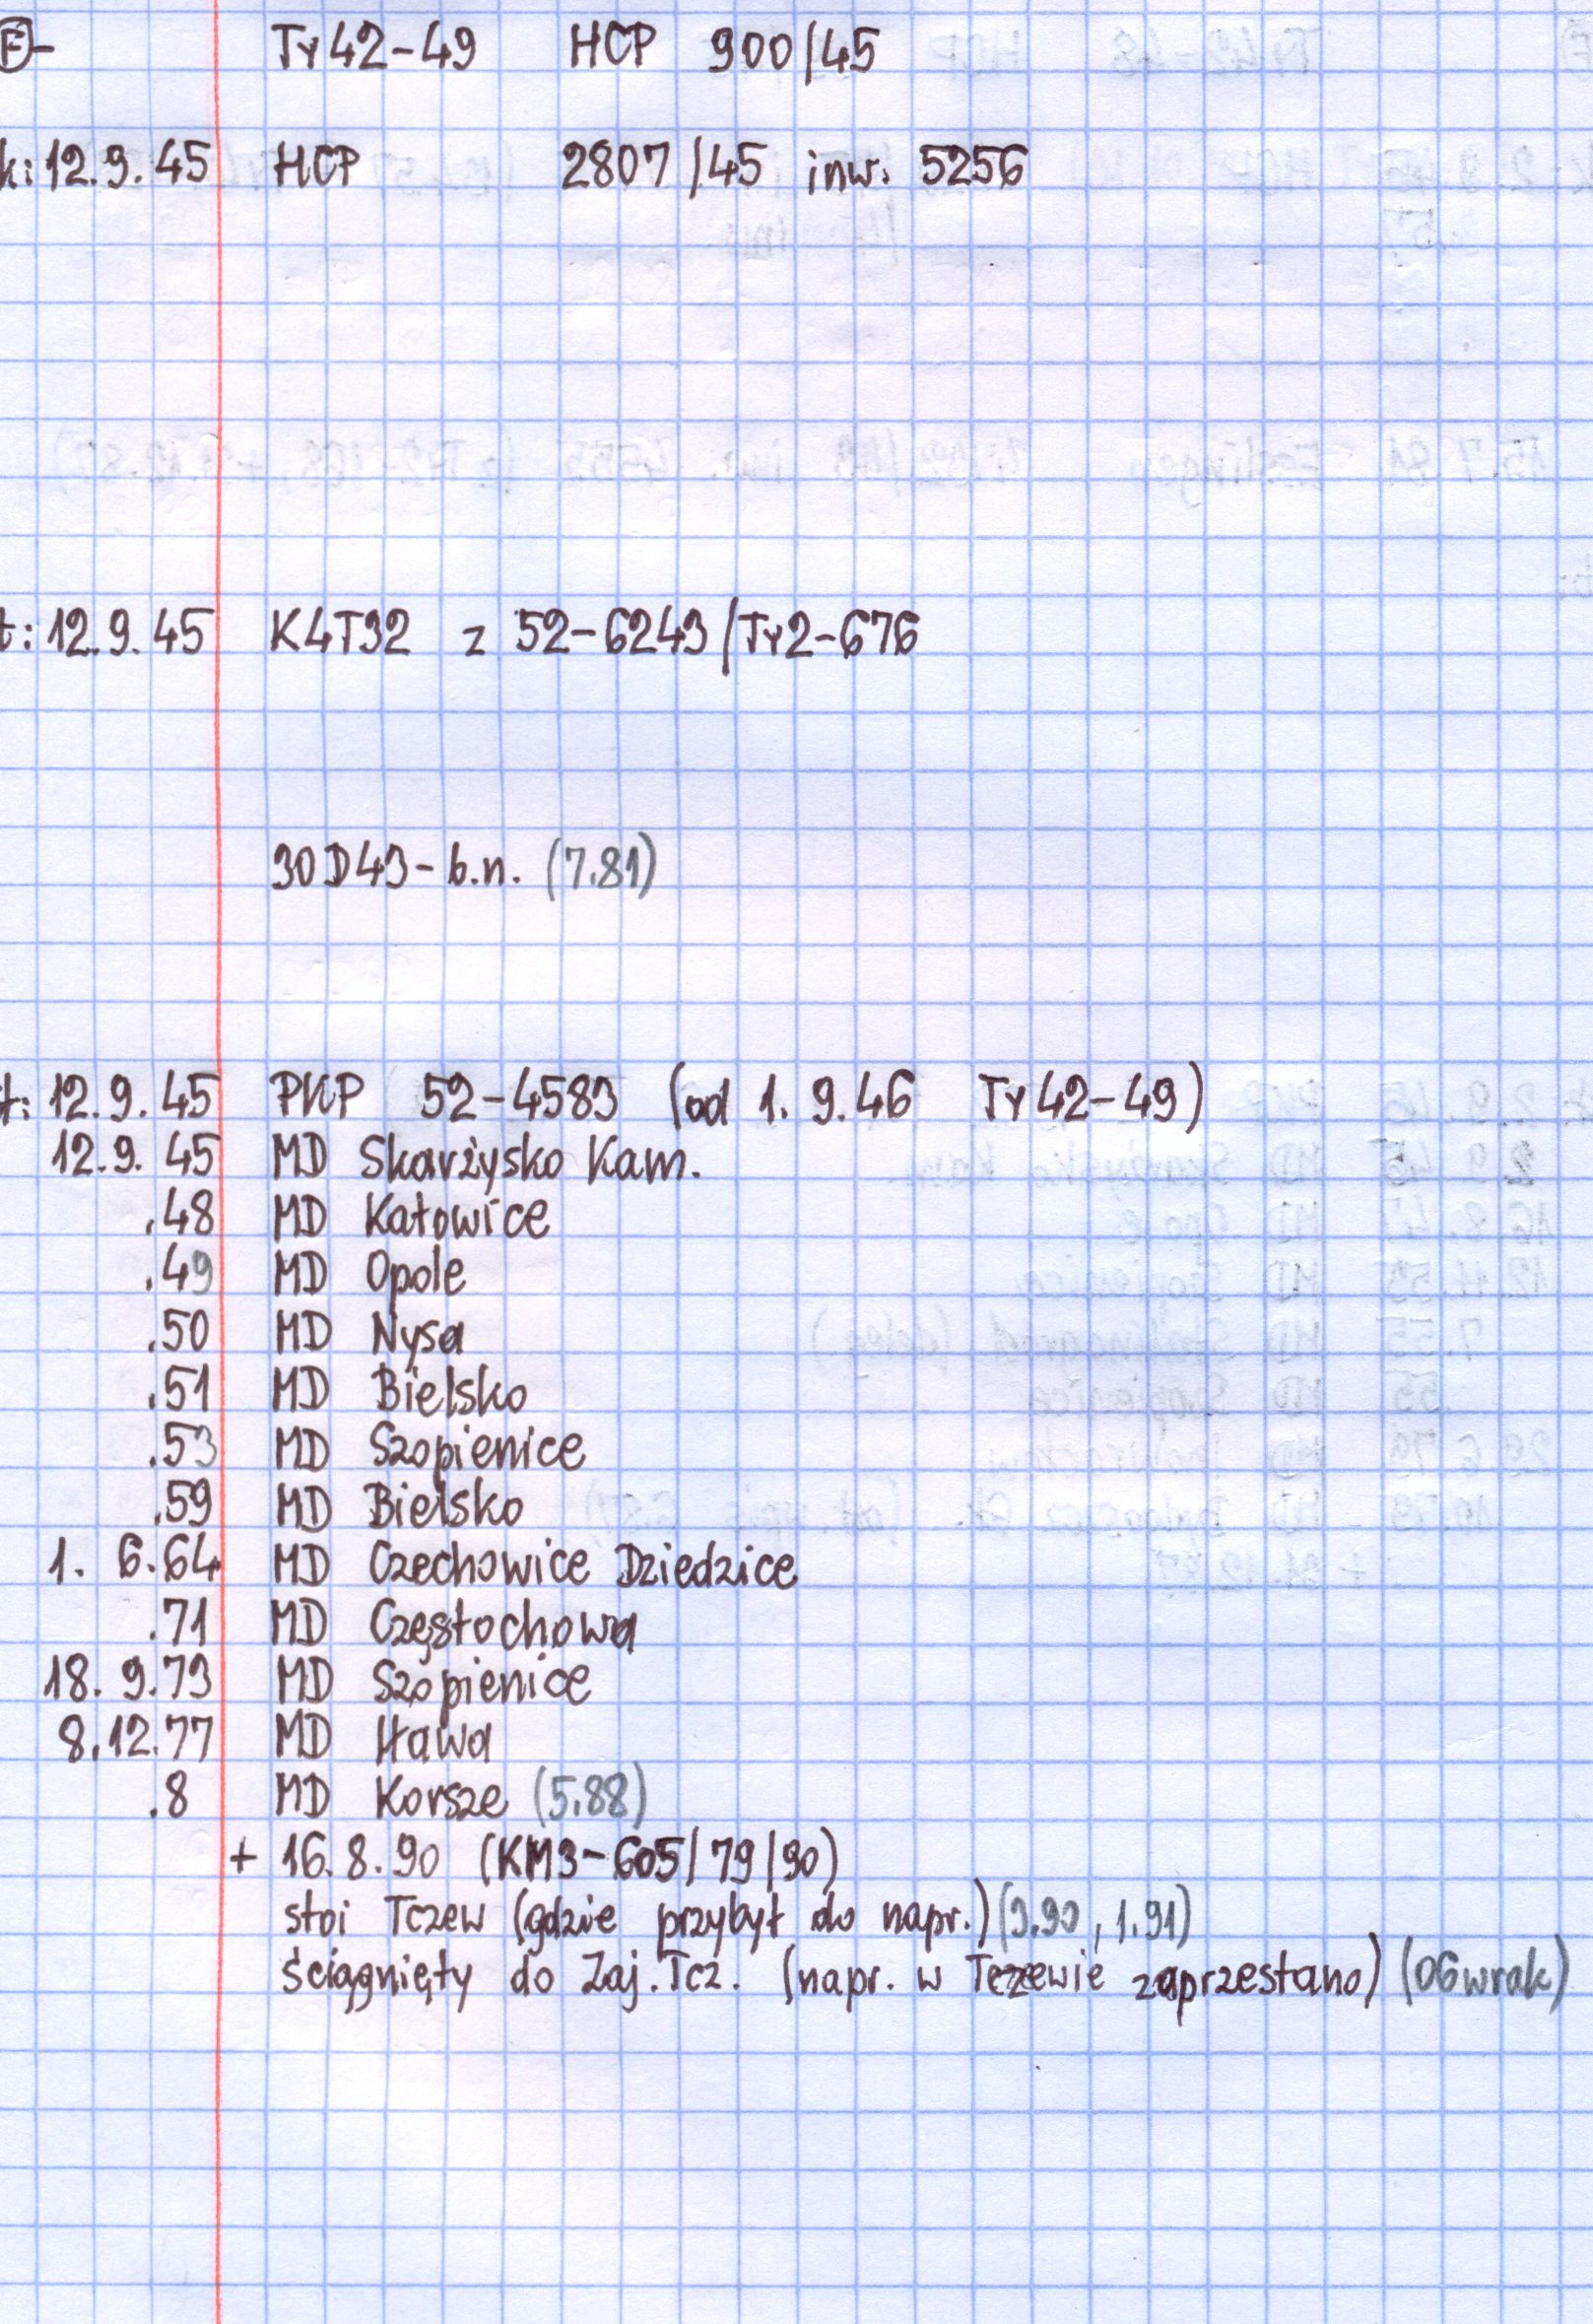 Ⓕ- Ty42-49 HCP 900/45
k: 12.9.45 HCP 2807/45 inw. 5256
t: 12.9.45 K4T32 z 52-6243/Ty2-676
30D43-b.n. (7.81)
t: 12.9.45 PKP 52-4583 (od 1.9.46 Ty42-49)
12.9.45 MD Skarżysko Kam.
.48 MD Katowice
.49 MD Opole
.50 MD Nysa
.51 MD Bielsko
.53 MD Szopienice
.59 MD Bielsko
1. 6.64 MD Czechowice Dziedzice
.71 MD Częstochowa
18. 9.73 MD Szopienice
8.12.77 MD Iława
.8 MD Korsze (5.88)
+ 16.8.90 (KM3-605/79/90)
stoi Tczew (gdzie przybył do napr.) (9.90, 1.91)
ściągnięty do Zaj.Tcz. (napr. w Tczewie zaprzestano) (06 wrak)